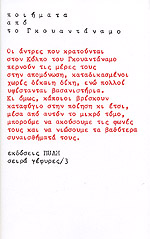 ποιήματα
από
το Γκουαντάναμο
Οι άντρες που κρατούνται
στον Κόλπο του Γκουαντάναμο
περνούν τις μέρες τους
στην απομόνωση, καταδικασμένοι
χωρίς δίκαιη δίκη, ενώ πολλοί
υφίστανται βασανιστήρια.
Κι όμως, κάποιοι βρίσκουν
καταφύγιο στην ποίηση κι έτσι,
μέσα από αυτόν το μικρό τόμο,
μπορούμε να ακούσουμε τις φωνές
τους και να νιώσουμε τα βαθύτερα
συναισθήματά τους.
εκδόσεις ΠΥΛΗ
σειρά γέφυρες/3